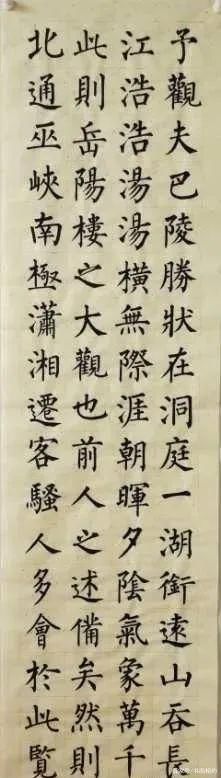 予觀夫巴陵勝狀在洞庭一湖銜遠山吞長
江浩浩湯湯橫無際涯朝暉夕陰氣象萬千
此則岳陽樓之大觀也前人之述備矣然則
北通巫峽南極瀟湘遷客騷人多會於此覽